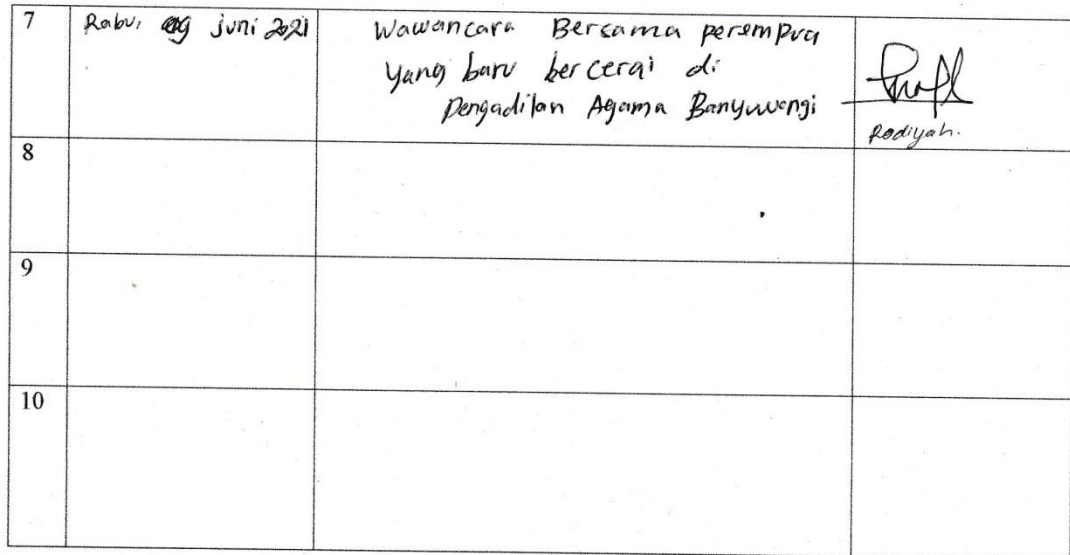 7
Rabu, 09 juni 2021
Wawancara Bersama perempua
yang baru bercerai di
Pengadilan Agama Banyuwangi
Rodiyah.
8
9
10